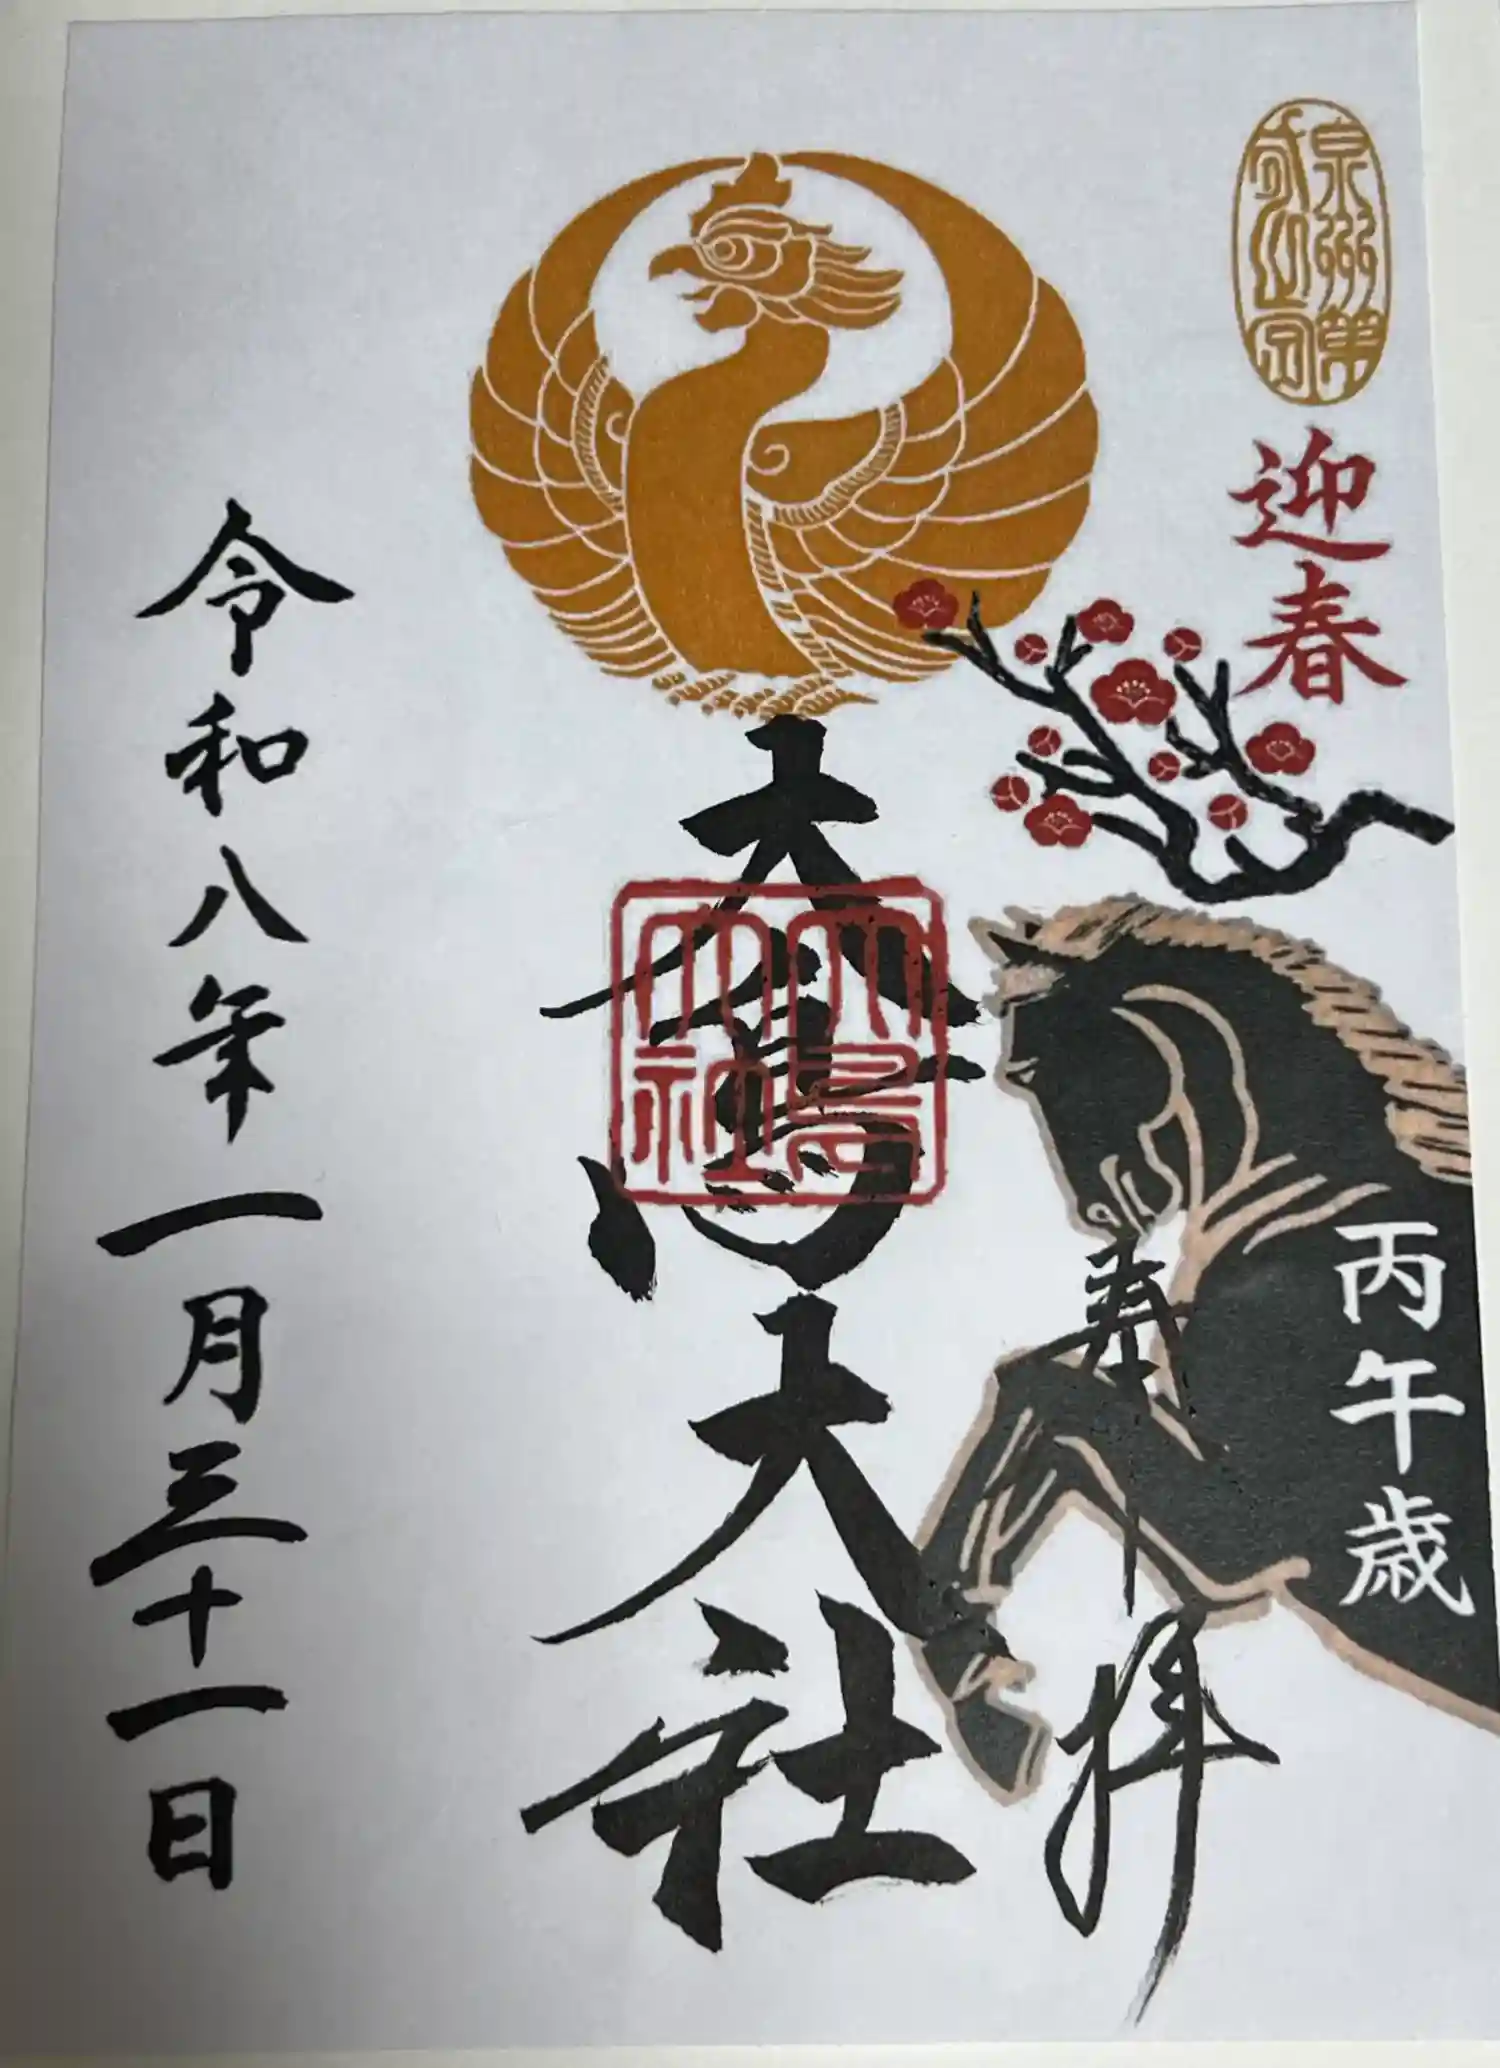 泉州第
迎春
丙午歳
奉拝
大鳥大社
大鳥
大社
令和八年一月三十一日